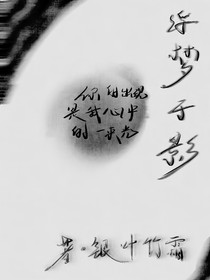 梦于影
你的出现
是我心中
的一束光
著·银叶竹霜